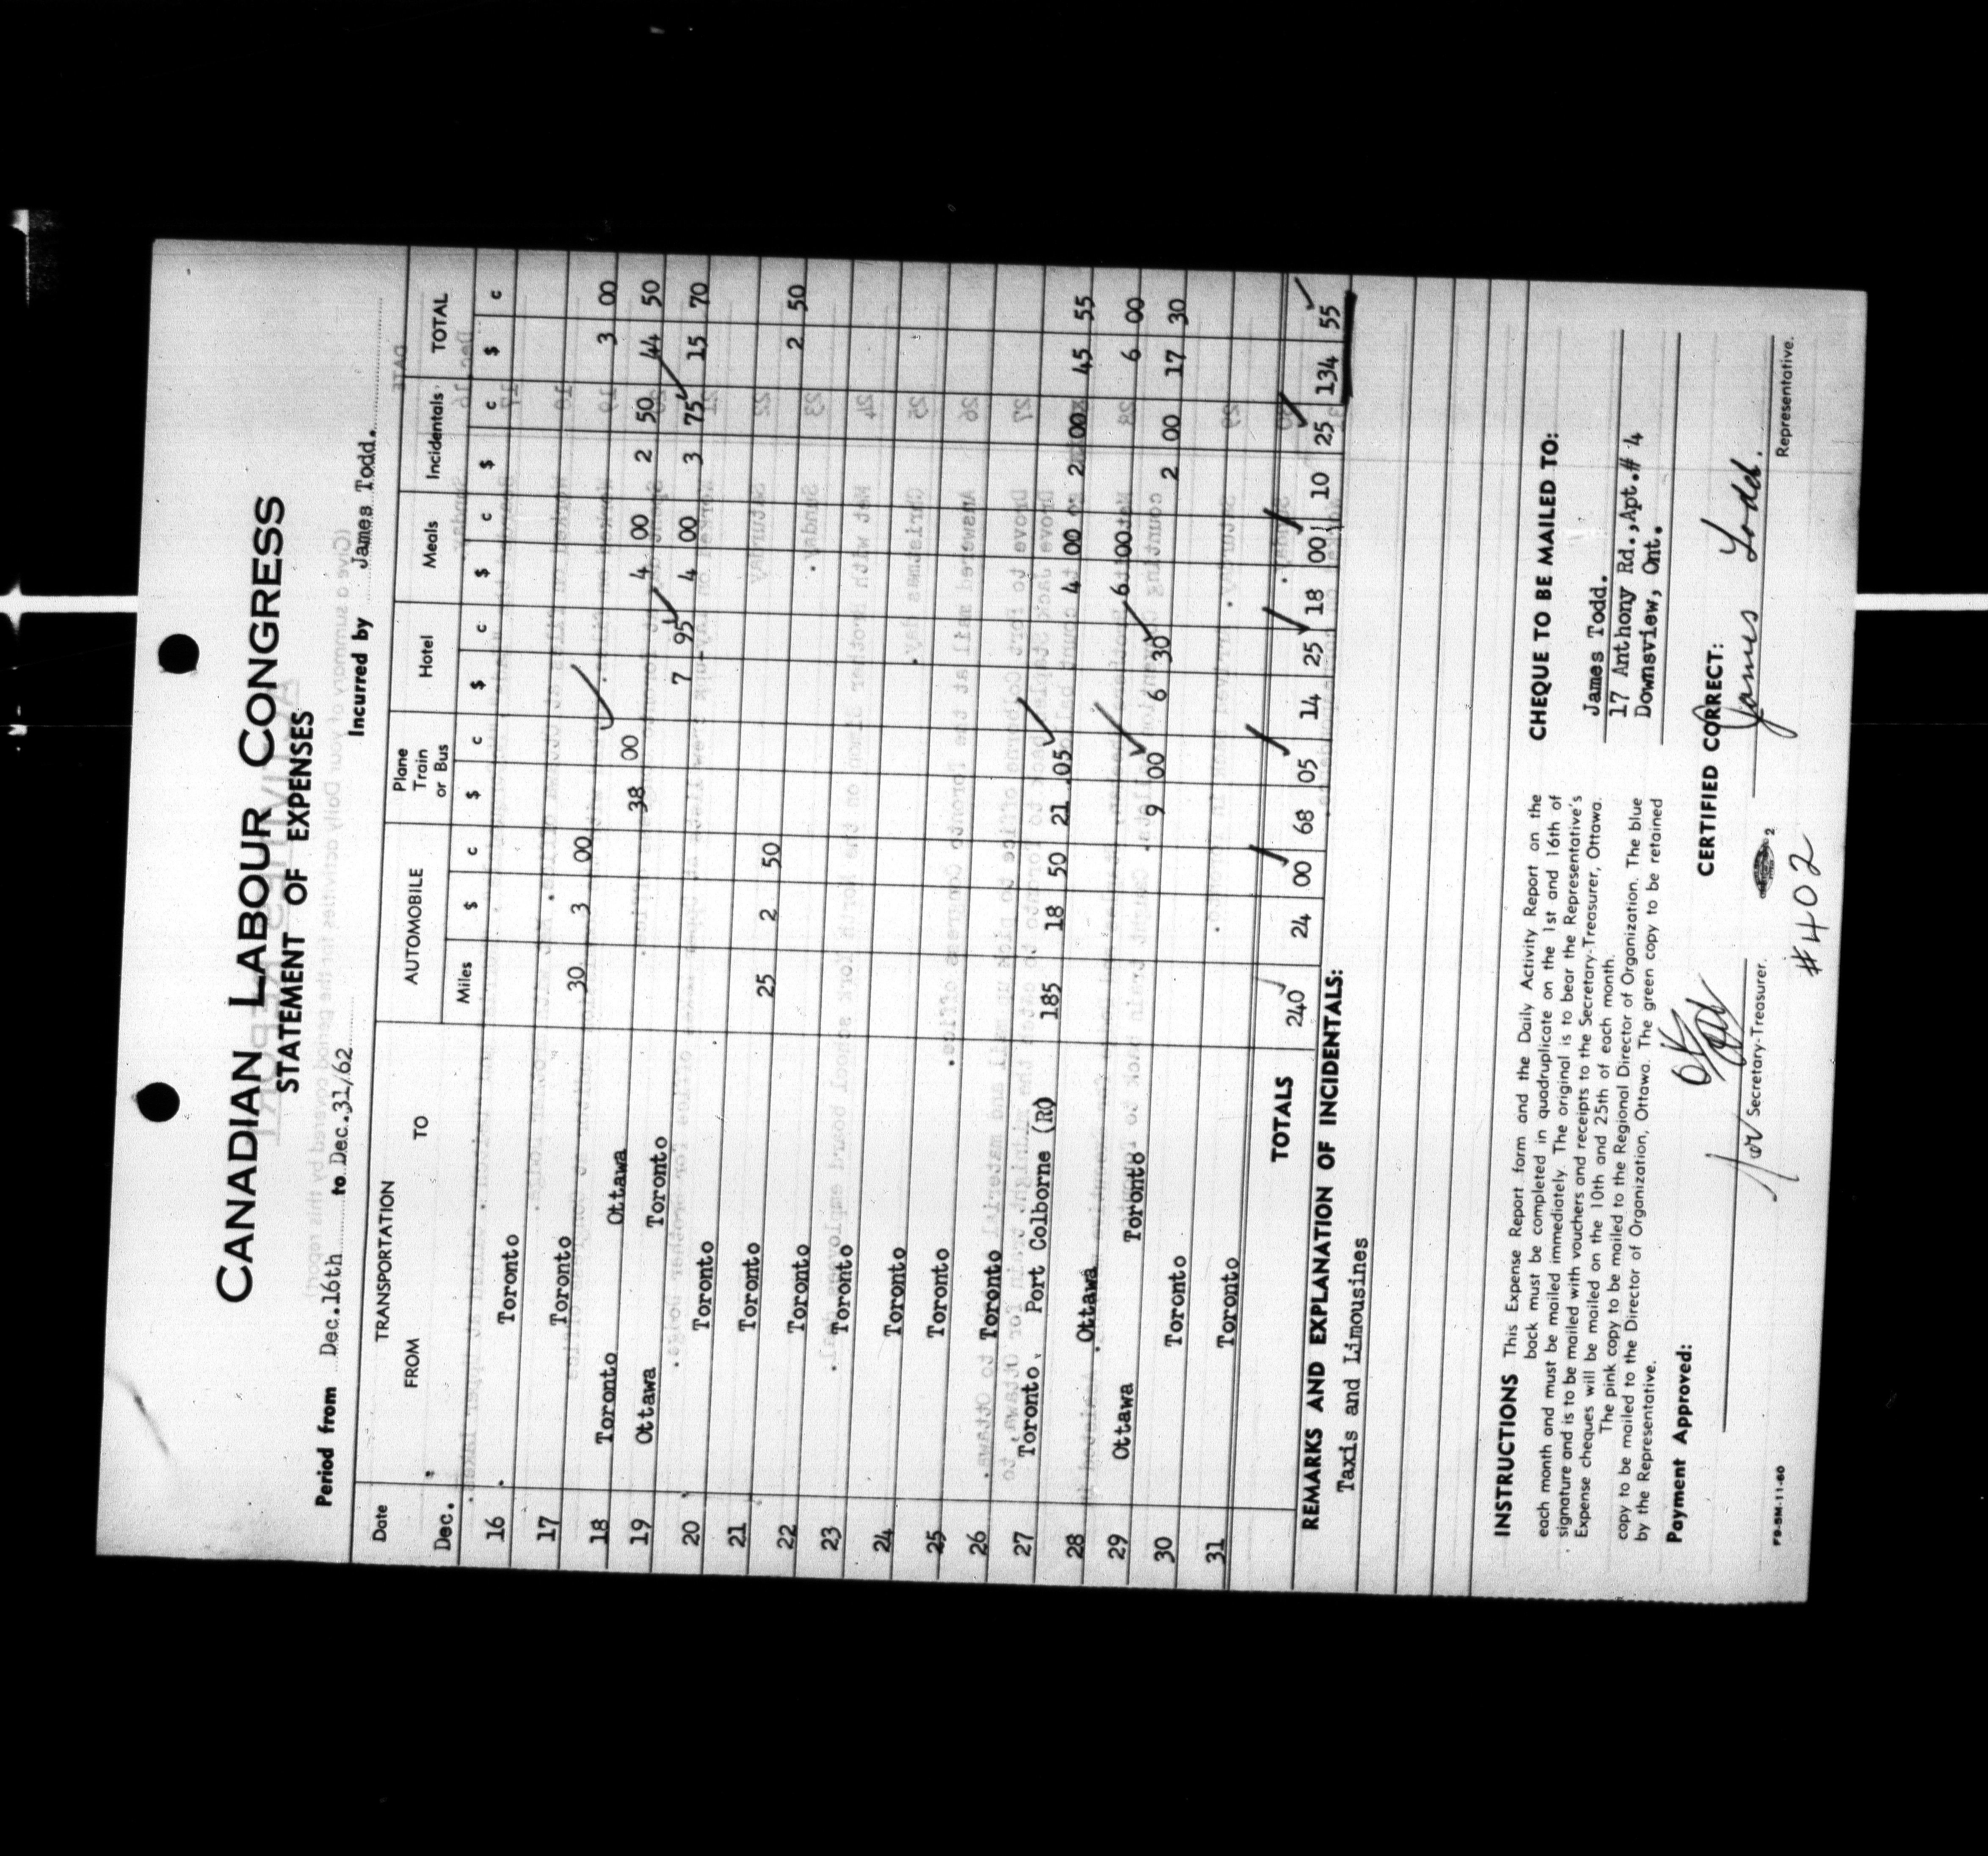 CANADIAN LABOUR CONGRESS
STATEMENT OF EXPENSES
Period from Dec.16th to Dec.31/62 Incurred by James Todd.
Date TRANSPORTATION AUTOMOBILE Plane Train or Bus Hotel Meals Incidentals TOTAL
FROM TO Miles $ c $ c $ c $ c $ c $ c
Dec.
16 Toronto
17 Toronto 30 3 00 3 00
18 Toronto Ottawa 38 00 4 00 2 50 44 50
19 Ottawa Toronto 7 95 4 00 3 75 15 70
20 Toronto
21 Toronto 25 2 50 2 50
22 Toronto
23 Toronto
24 Toronto
25 Toronto
26 Toronto
27 Toronto Port Colborne 185 18 50 21 .05 4 00 2 00 45 55
28 Ottawa 6 00 6 00
29 Ottawa Toronto 9 00 6 30 2 00 17 30
30 Toronto
31 Toronto
TOTALS 240 24 00 68 05 14 25 18 00 10 25 134 55
REMARKS AND EXPLANATION OF INCIDENTALS:
Taxis and Limousines
INSTRUCTIONS This Expense Report form and the Daily Activity Report on the
back must be completed in quadruplicate on the 1st and 16th of
each month and must be mailed immediately. The original is to bear the Representative's
signature and is to be mailed with vouchers and receipts to the Secretary-Treasurer, Ottawa.
Expense cheques will be mailed on the 10th and 25th of each month.
The pink copy to be mailed to the Regional Director of Organization. The blue
copy to be mailed to the Director of Organization, Ottawa. The green copy to be retained
by the Representative.
CHEQUE TO BE MAILED TO:
James Todd.
17 Anthony Rd.,Apt.# 4
Downsview, Ont.
Payment Approved:
OK
for Secretary-Treasurer.
CERTIFIED CORRECT:
James Todd.
Representative.
#402
FB-5M-11-60